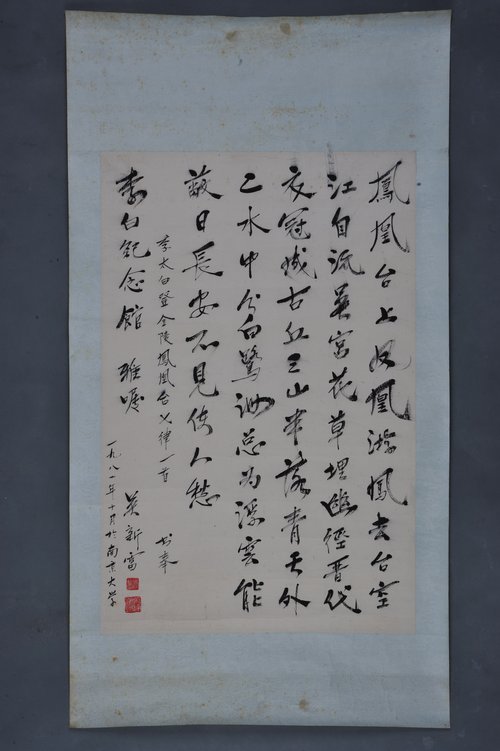 鳳凰台上凤凰游鳳去台空
江自流吴宫花草埋幽徑晋代
衣冠成古丘三山半落青天外
二水中分白鷺洲总为浮雲能
蔽日長安不見使人愁
李太白登金陵鳳凰台七律一首 书奉
李白纪念館 雅嘱
吴新雷
一九八一年十月於南京大学